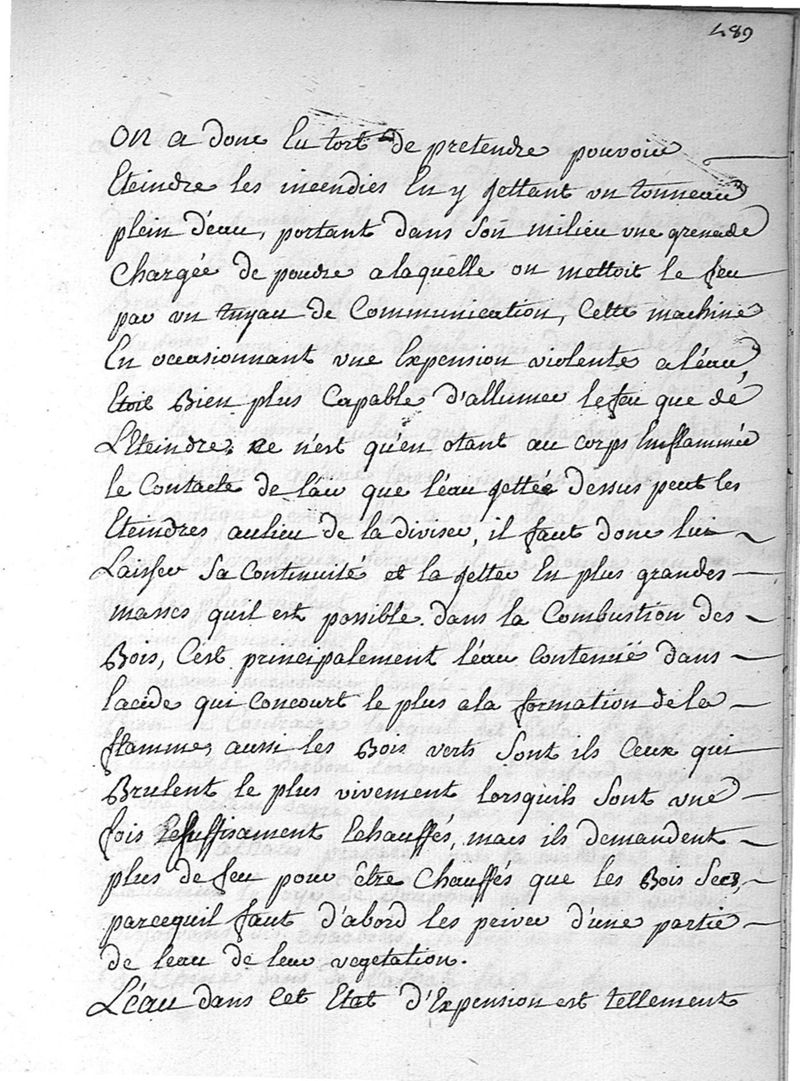 489
On a donc Eu tort de pretendre pouvoir
Eteindre les incendies En y jettant un tonneau
plein d'eau, portant dans son milieu une grenade
Chargée de poudre a laquelle on mettoit le feu
par un tuyau de Communication, Cette machine
En occasionnant une Expension violente a léau,
Etoit Bien plus Capable d'allumer le feu que de
L'Eteindre. ce n'est qu'en otant au corps Enflammée
le Contacte de l'air que léau jettée dessus peut les
Eteindres aulieu de la diviser, il faut donc lui
Laisser sa Continuité et la jetter En plus grandes
masses quil est possible. dans la Combustion des
Bois, C'est principalement léau Contenüe dans
lacide qui concourt le plus a la formation de la
flammes aussi les Bois verts sont ils Ceux qui
Brulent le plus vivement lorsquils sont une
fois suffisament Echauffés, mais ils demandent
plus de feu pour être Chauffés que les Bois Secs,
parcequil faut d'abord les priver d'une partie
de leau de leur vegetation.
Léau dans Cet Etat d'Expension est tellement